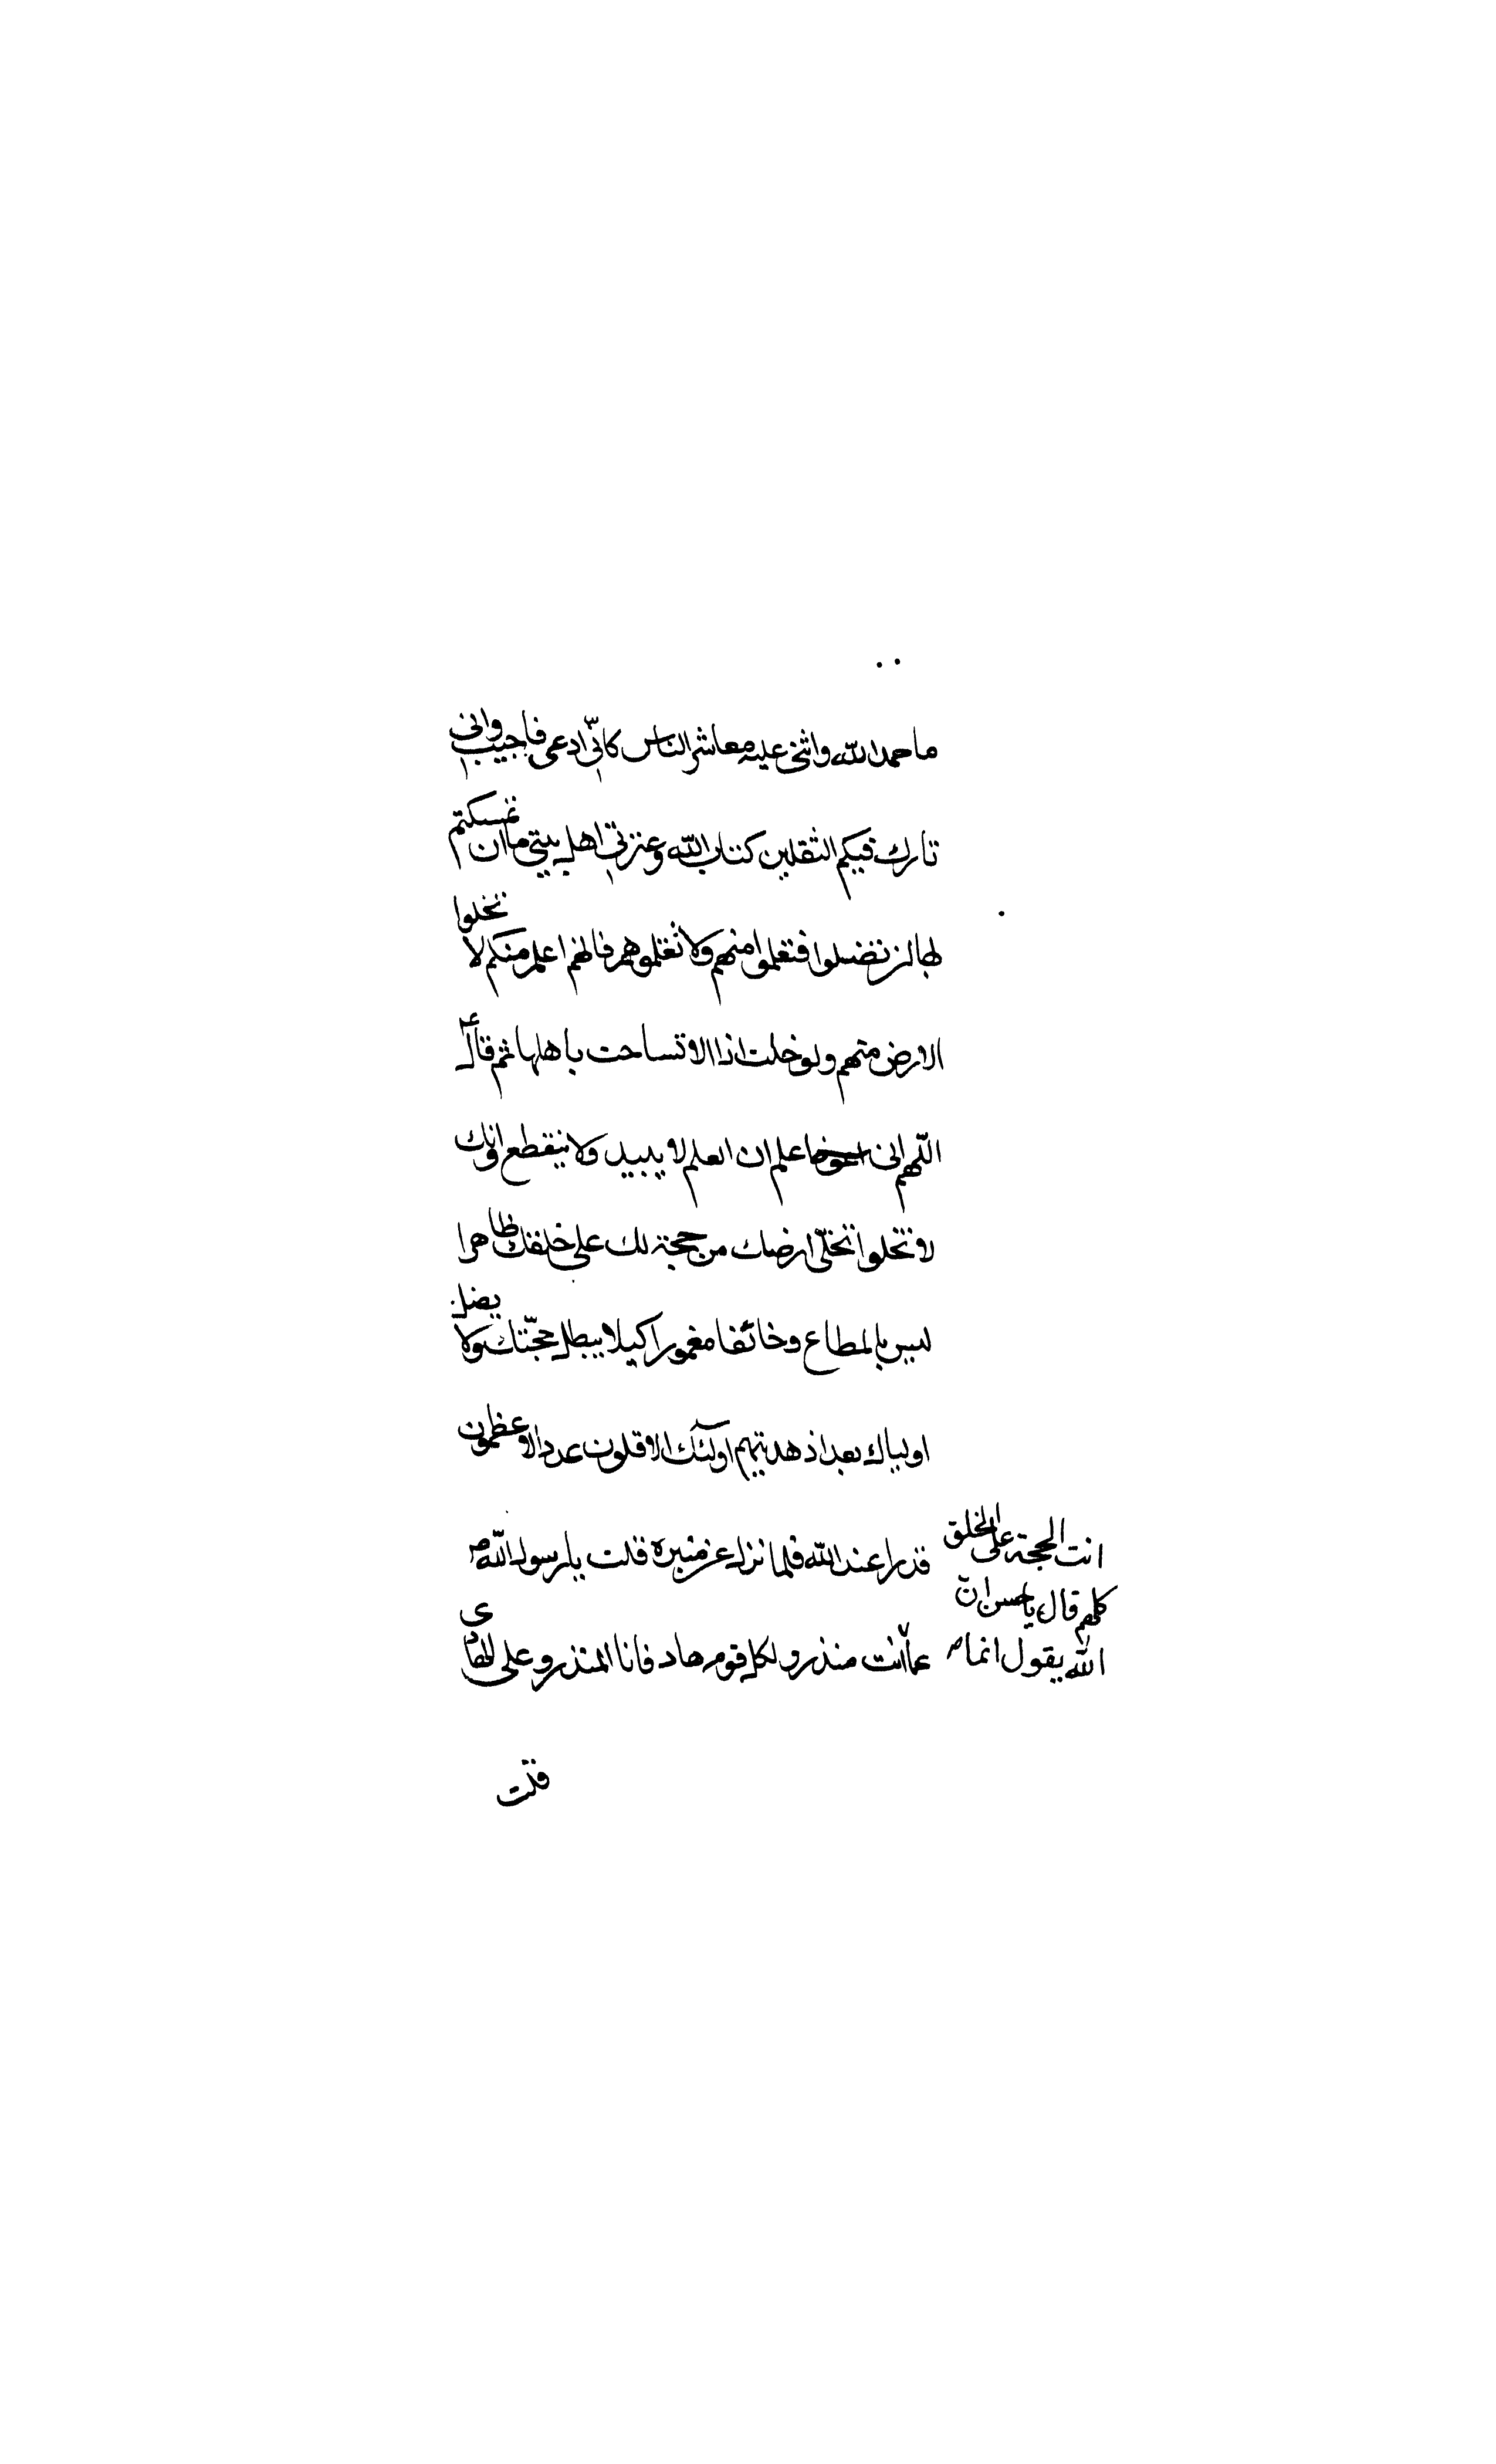 ما حمد الله واثنى عليه معاشر الناس كانّي ادعى فاجيب واني
تارك فيكم الثقلين كتاب الله وعترتي اهل بيتي ما ان تمسكتم
بهما لن تضلوا فتعلموا منهم ولا تعلموهم فانهم اعلم منكم لا تخلوا
الارض منهم ولو خلت اذا لا تساخت باهلها ثم قال ع
اللّهم اني اعلم ان العلم لا يبيد ولا ينقطع وانك
لا تخلوا تخلّى ارضك من حجة لك على خلقك ظاهرا
ليس بالمطاع وخائفا مغمورا كيلا يبطل حجّتك ولا يضل
اولياك بعد اذ هديتهم اولئك الاقلون عددا الاعظمون
قدرا عند الله فلما نزل عن منبره قلت يا رسول الله ص
انت الحجة على الخلق
كلهم قال يا حسن انّ
الله يقول انما
انت منذر ولكل قوم هاد فانا المنذر وعلى الهادى
قلت